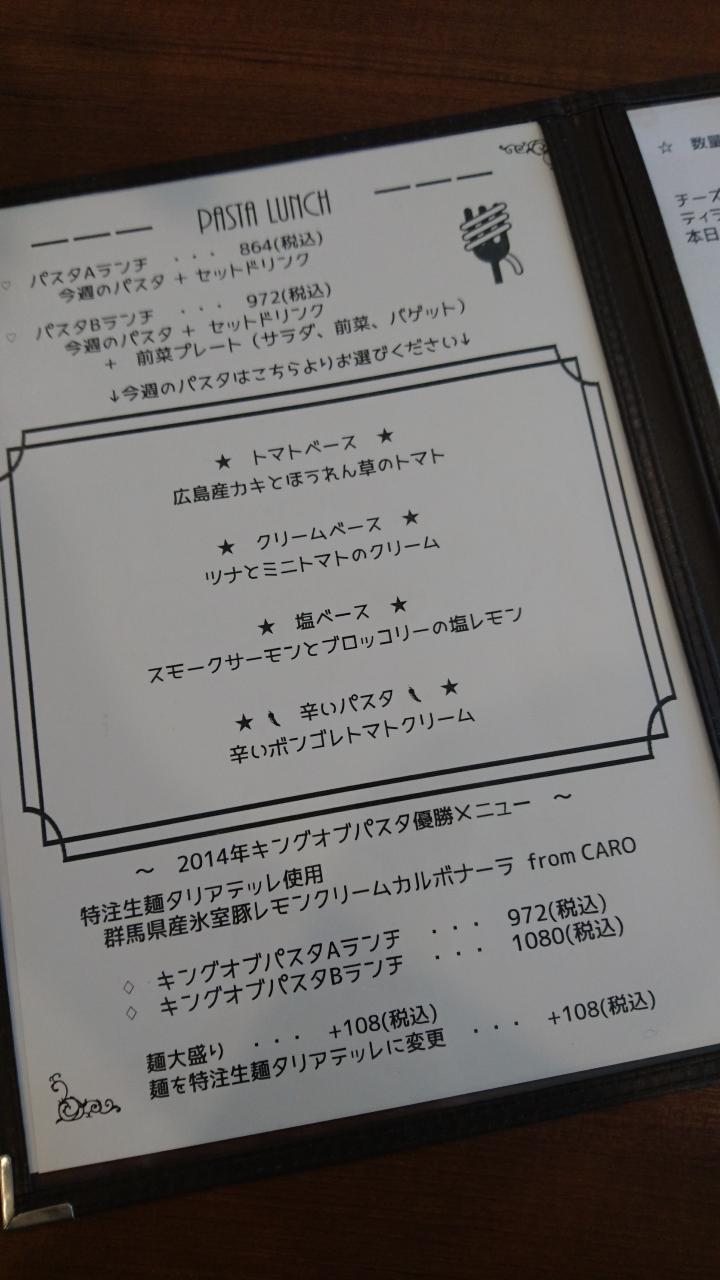 PASTA LUNCH
♡ パスタAランチ ・・・ 864(税込)
今週のパスタ + セットドリンク
♡ パスタBランチ ・・・ 972(税込)
今週のパスタ + セットドリンク
+ 前菜プレート (サラダ、前菜、バゲット)
↓今週のパスタはこちらよりお選びください↓
★ トマトベース ★
広島産カキとほうれん草のトマト
★ クリームベース ★
ツナとミニトマトのクリーム
★ 塩ベース ★
スモークサーモンとブロッコリーの塩レモン
★ 辛いパスタ ★
辛いボンゴレトマトクリーム
～ 2014年キングオブパスタ優勝メニュー ～
特注生麺タリアテッレ使用
群馬県産氷室豚レモンクリームカルボナーラ from CARO
◇ キングオブパスタAランチ ・・・ 972(税込)
◇ キングオブパスタBランチ ・・・ 1080(税込)
麺大盛り ・・・ +108(税込)
麺を特注生麺タリアテッレに変更 ・・・ +108(税込)
☆ 数量
チーズ
ティラ
本日